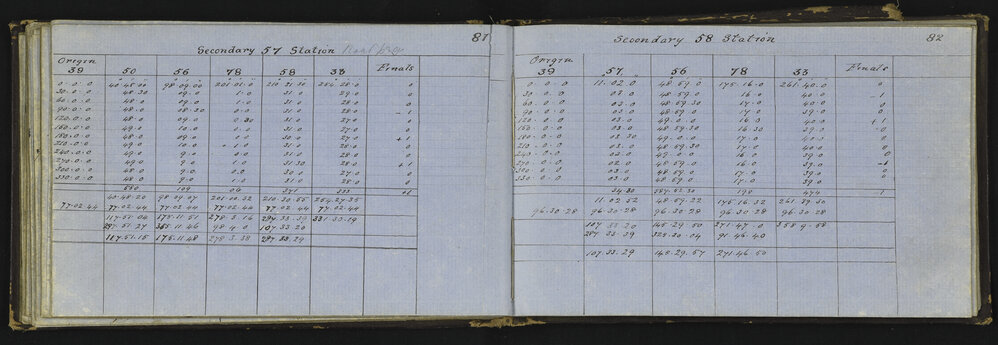 81
Secondary 57 Station
Origin Finals
39 50 56 78 58 33
0.0.0 40.48.00 98.09.00 201.01.0 210.31.00 254.28.0 0
30.0.0 48.30 09.0 1.0 31.0 29.0 0
60.0.0 48.0 09.0 1.0 31.0 28.0 0
90.0.0 48.0 08.30 0.0 31.0 28.0 - 1
120.0.0 48.0 09.0 0.30 31.0 27.0 0
150.0.0 49.0 10.0 0.0 31.0 27.0 0
180.0.0 48.0 09.0 0.0 30.0 27.0 + 1
210.0.0 49.0 10.0 1.0 31.0 28.0 0
240.0.0 49.0 9.0 0.0 31.0 28.0 0
270.0.0 49.0 9.0 0.0 31.30 28.0 + 1
300.0.0 48.0 9.0 0.0 30.0 27.0 0
330.0.0 48.0 9.0 1.0 31.0 28.0 0
109 371
40.48.20 98.09.07 201.00.32 210.30.55 254.27.35
77.02.44 77.02.44 77.02.44 77.02.44 77.02.44 77.02.44
117.51.04 175.11.51 278.3.16 287.33.39 331.30.19
297.51.27 355.11.46 98.4.0 107.33.20
117.51.15 175.11.48 278.3.38 287.33.29
Secondary 58 Station 82
Origin Finals
39 57 56 78 33
0.0.0 11.02.0 48.59.0 175.16.0 261.40.0 0
30.0.0 03.0 48.59.0 16.0 40.0 1
60.0.0 03.0 48.59.30 17.0 40.0 0
90.0.0 03.0 48.59.0 17.0 39.0 0
120.0.0 03.0 49.0.0 16.0 40.0 + 1
150.0.0 03.0 48.59.30 16.30 39.0 0
180.0.0 03.30 49.0.0 17.0 40.0 0
210.0.0 03.0 48.59.30 17.0 40.0 0
240.0.0 02.0 49.0.0 16.0 39.0
270.0.0 02.0 48.59.0 16.0 39.0
300.0.0 03.0 48.59.0 17.0 39.0 0
330.0.0 03.0 48.59.0 17.0 39.0 0
34.30 198 474
11.02.52 48.59.22 175.16.32 261.39.30
96.30.28 96.30.28 96.30.28 96.30.28 96.30.28
107.33.20 145.29.50 271.47.0 358.9.58
287.33.39 325.30.04 91.46.40
107.33.29 145.29.57 271.46.50